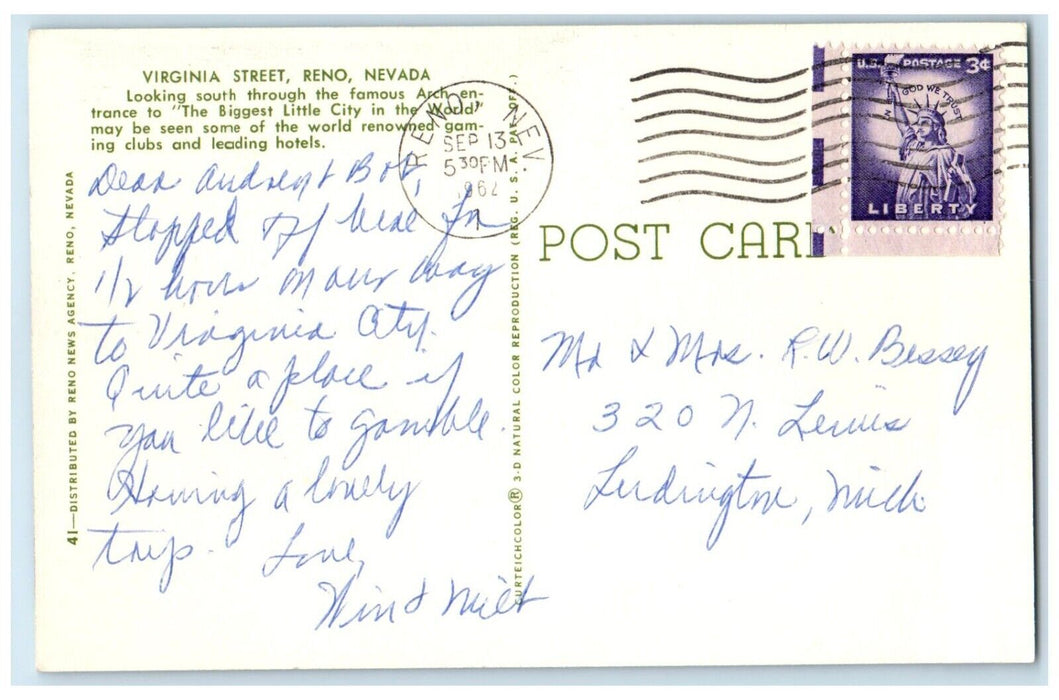 VIRGINIA STREET, RENO, NEVADA
Looking south through the famous Arch en-
trance to "The Biggest Little City in the World"
may be seen some of the world renowned gam-
ing clubs and leading hotels.
Dear Audrey & Bob,
Stopped off here for
1/2 hour on our way
to Virginia City.
Quite a place if
you like to gamble.
Having a lovely
trip.
Love,
Win & Milt
41—DISTRIBUTED BY RENO NEWS AGENCY, RENO, NEVADA
CURTEICHCOLOR® 3-D NATURAL COLOR REPRODUCTION (REG. U. S. A. PAT. OFF.)
RENO, NEV.
SEP 13
5 30 PM
1962
U.S. POSTAGE 3¢
IN GOD WE TRUST
LIBERTY
POST CARD
Mr & Mrs. R.W. Bessey
320 N. Lewis
Ludington, Mich